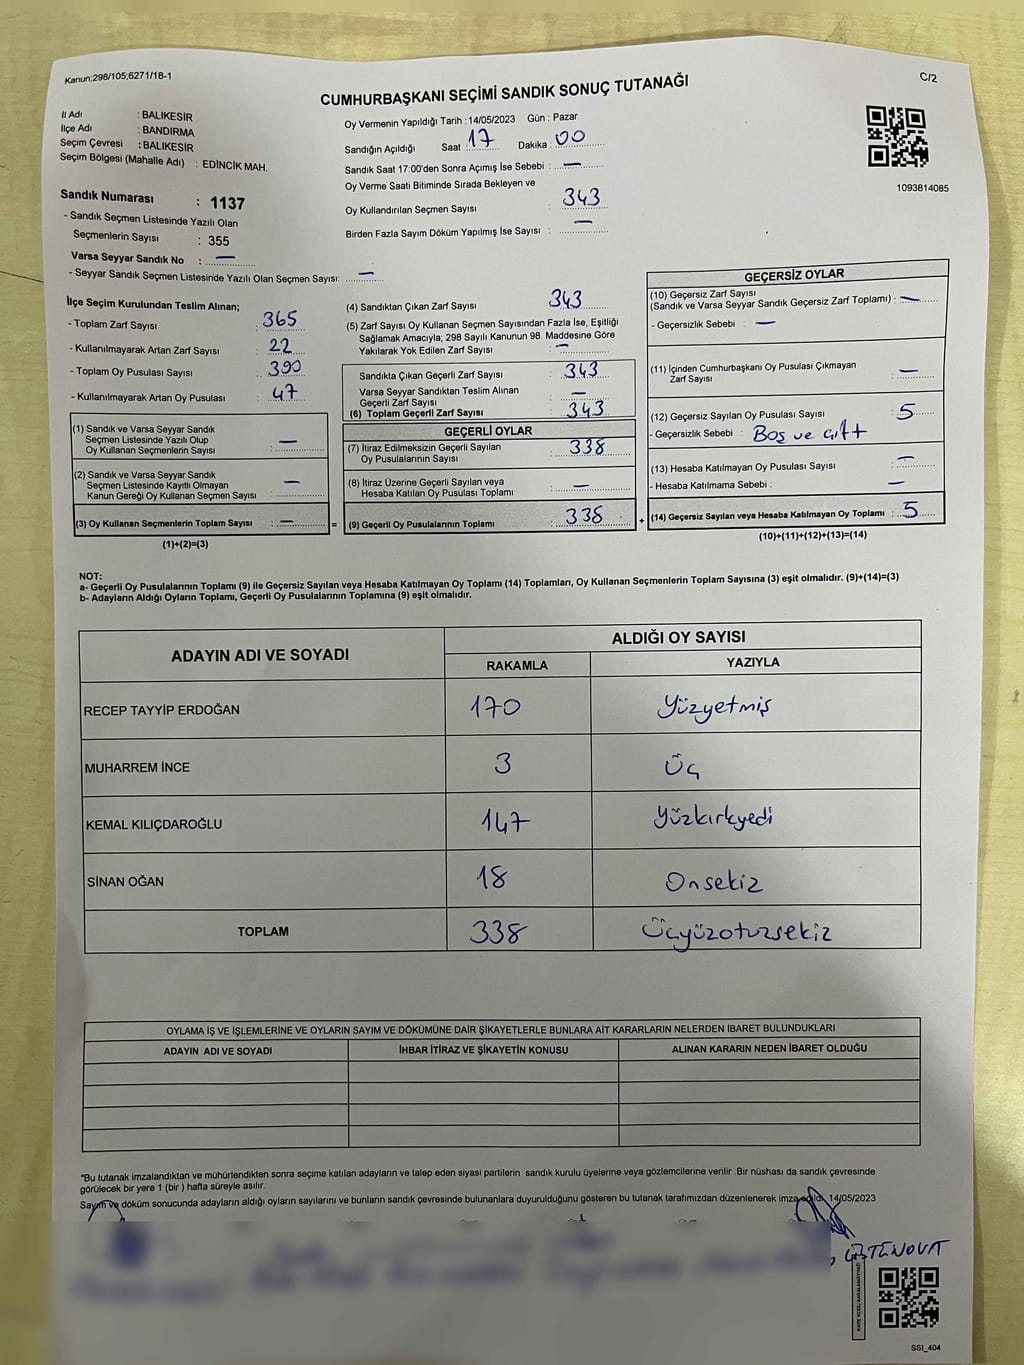 Kanun:298/105;6271/18-1
C/2
CUMHURBAŞKANI SEÇİMİ SANDIK SONUÇ TUTANAĞI
İl Adı : BALIKESİR
İlçe Adı : BANDIRMA
Seçim Çevresi : BALIKESİR
Seçim Bölgesi (Mahalle Adı) : EDİNCİK MAH.
Sandık Numarası : 1137
- Sandık Seçmen Listesinde Yazılı Olan
Seçmenlerin Sayısı : 355
Varsa Seyyar Sandık No : —
- Seyyar Sandık Seçmen Listesinde Yazılı Olan Seçmen Sayısı: —
Oy Vermenin Yapıldığı Tarih :14/05/2023 Gün : Pazar
Sandığın Açıldığı Saat :17 Dakika :00
Sandık Saat 17:00'den Sonra Açımış İse Sebebi : —
Oy Verme Saati Bitiminde Sırada Bekleyen ve
Oy Kullandırılan Seçmen Sayısı : 343
Birden Fazla Sayım Döküm Yapılmış İse Sayısı : —
1093814085
İlçe Seçim Kurulundan Teslim Alınan;
- Toplam Zarf Sayısı : 365
- Kullanılmayarak Artan Zarf Sayısı : 22
- Toplam Oy Pusulası Sayısı : 390
- Kullanılmayarak Artan Oy Pusulası : 47
(1) Sandık ve Varsa Seyyar Sandık
Seçmen Listesinde Yazılı Olup
Oy Kullanan Seçmenlerin Sayısı : —
(2) Sandık ve Varsa Seyyar Sandık
Seçmen Listesinde Kayıtlı Olmayan
Kanun Gereği Oy Kullanan Seçmen Sayısı : —
(3) Oy Kullanan Seçmenlerin Toplam Sayısı : —
(1)+(2)=(3)
=
(4) Sandıktan Çıkan Zarf Sayısı : 343
(5) Zarf Sayısı Oy Kullanan Seçmen Sayısından Fazla İse, Eşitliği
Sağlamak Amacıyla; 298 Sayılı Kanunun 98. Maddesine Göre
Yakılarak Yok Edilen Zarf Sayısı : —
Sandıkta Çıkan Geçerli Zarf Sayısı : 343
Varsa Seyyar Sandıktan Teslim Alınan
Geçerli Zarf Sayısı : —
(6) Toplam Geçerli Zarf Sayısı : 343
GEÇERLİ OYLAR
(7) İtiraz Edilmeksizin Geçerli Sayılan
Oy Pusulalarının Sayısı : 338
(8) İtiraz Üzerine Geçerli Sayılan veya
Hesaba Katılan Oy Pusulası Toplamı : —
(9) Geçerli Oy Pusulalarının Toplamı : 338
+
GEÇERSİZ OYLAR
(10) Geçersiz Zarf Sayısı
(Sandık ve Varsa Seyyar Sandık Geçersiz Zarf Toplamı) : —
- Geçersizlik Sebebi : —
(11) İçinden Cumhurbaşkanı Oy Pusulası Çıkmayan
Zarf Sayısı : —
(12) Geçersiz Sayılan Oy Pusulası Sayısı : 5
- Geçersizlik Sebebi : Boş ve çift
(13) Hesaba Katılmayan Oy Pusulası Sayısı : —
- Hesaba Katılmama Sebebi : —
(14) Geçersiz Sayılan veya Hesaba Katılmayan Oy Toplamı : 5
(10)+(11)+(12)+(13)=(14)
NOT:
a- Geçerli Oy Pusulalarının Toplamı (9) ile Geçersiz Sayılan veya Hesaba Katılmayan Oy Toplamı (14) Toplamları, Oy Kullanan Seçmenlerin Toplam Sayısına (3) eşit olmalıdır. (9)+(14)=(3)
b- Adayların Aldığı Oyların Toplamı, Geçerli Oy Pusulalarının Toplamına (9) eşit olmalıdır.
ADAYIN ADI VE SOYADI
ALDIĞI OY SAYISI
RAKAMLA YAZIYLA
RECEP TAYYİP ERDOĞAN 170 Yüzyetmiş
MUHARREM İNCE 3 Üç
KEMAL KILIÇDAROĞLU 147 Yüzkırkyedi
SİNAN OĞAN 18 Onsekiz
TOPLAM 338 Üçyüzotuzsekiz
OYLAMA İŞ VE İŞLEMLERİNE VE OYLARIN SAYIM VE DÖKÜMÜNE DAİR ŞİKAYETLERLE BUNLARA AİT KARARLARIN NELERDEN İBARET BULUNDUKLARI
ADAYIN ADI VE SOYADI İHBAR İTİRAZ VE ŞİKAYETİN KONUSU ALINAN KARARIN NEDEN İBARET OLDUĞU
*Bu tutanak imzalandıktan ve mühürlendikten sonra seçime katılan adayların ve talep eden siyasi partilerin sandık kurulu üyelerine veya gözlemcilerine verilir .Bir nüshası da sandık çevresinde
görülecek bir yere 1 (bir ) hafta süreyle asılır.
Sayım ve döküm sonucunda adayların aldığı oyların sayılarını ve bunların sandık çevresinde bulunanlara duyurulduğunu gösteren bu tutanak tarafımızdan düzenlenerek imza edildi. 14/05/2023
SSI_404